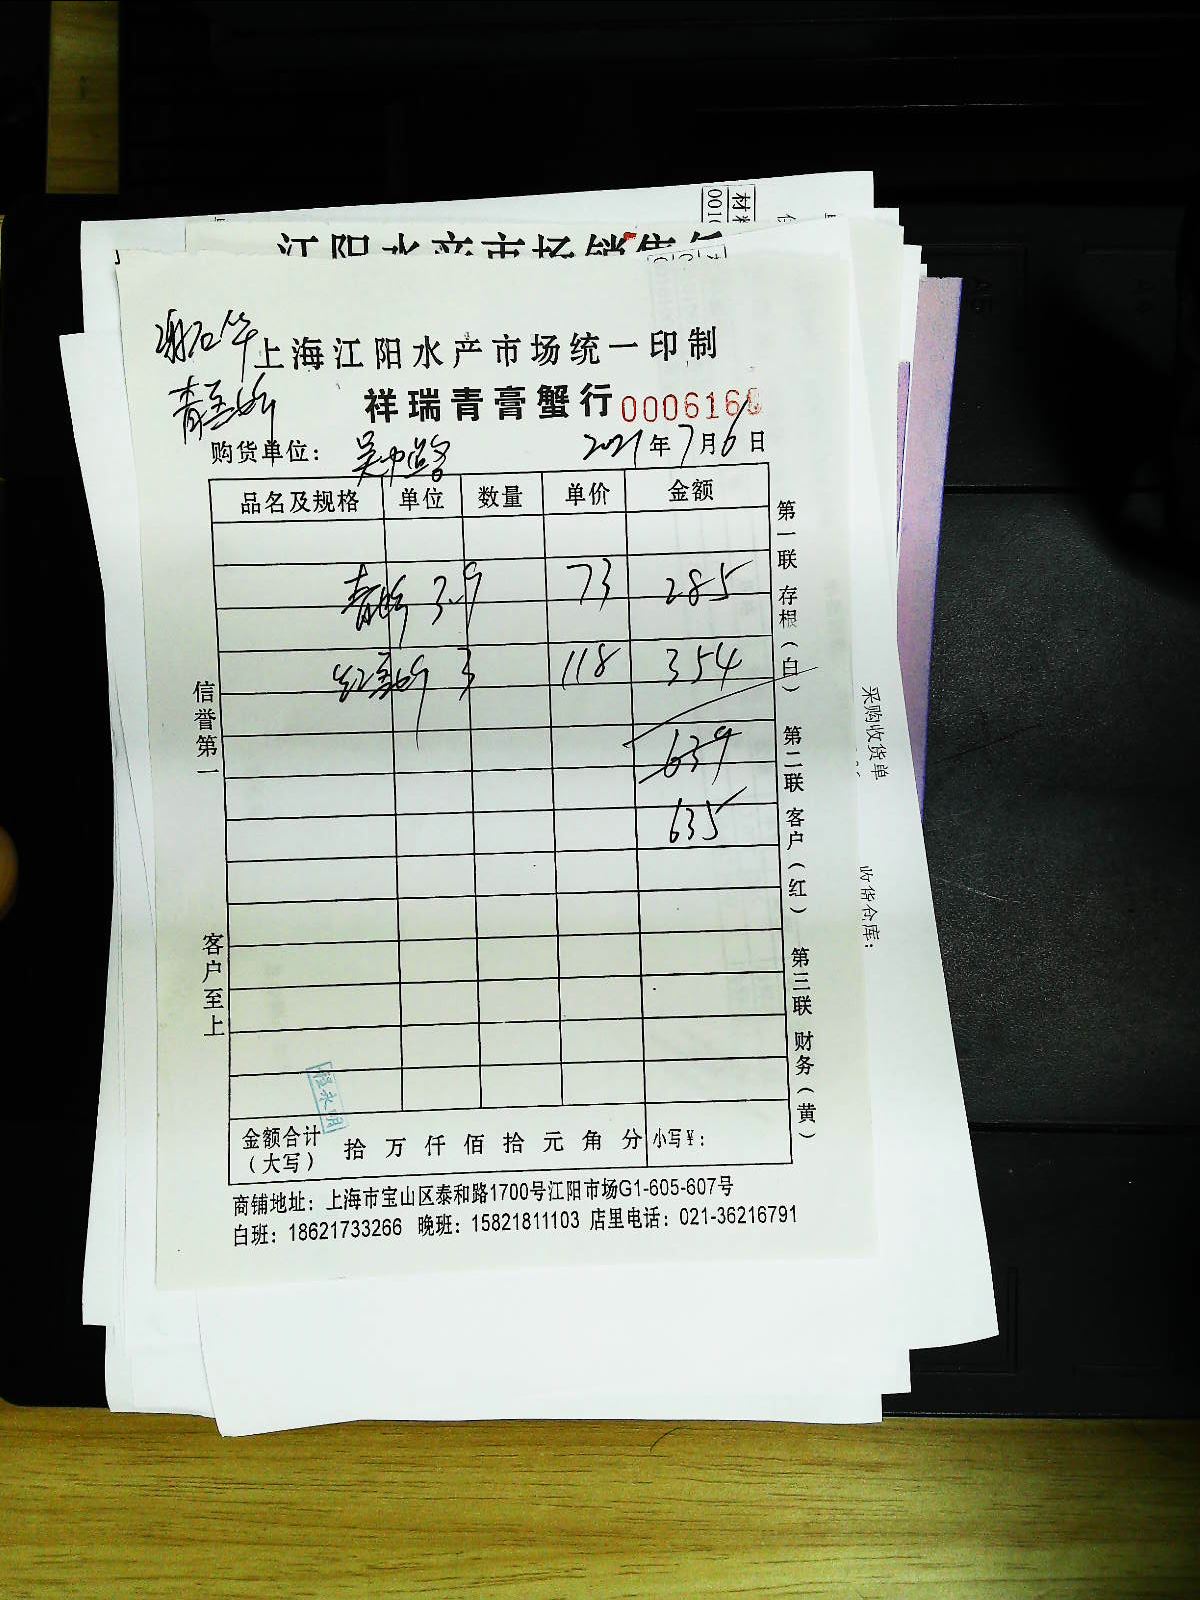 江阳水产市场销售
上海江阳水产市场统一印制
祥瑞青膏蟹行 000616
购货单位： 吴中路 2021年7月6日
品名及规格 单位 数量 单价 金额
青蟹 3.9 73 285
红膏蟹 3 118 354
639
635
金额合计（大写） 拾 万 仟 佰 拾 元 角 分 小写¥：
商铺地址：上海市宝山区泰和路1700号江阳市场G1-605-607号
白班：18621733266 晚班：15821811103 店里电话：021-36216791
信誉第一
客户至上
第一联 存根（白）
第二联 客户（红）
第三联 财务（黄）
程永明
采购收货单
收货仓库：